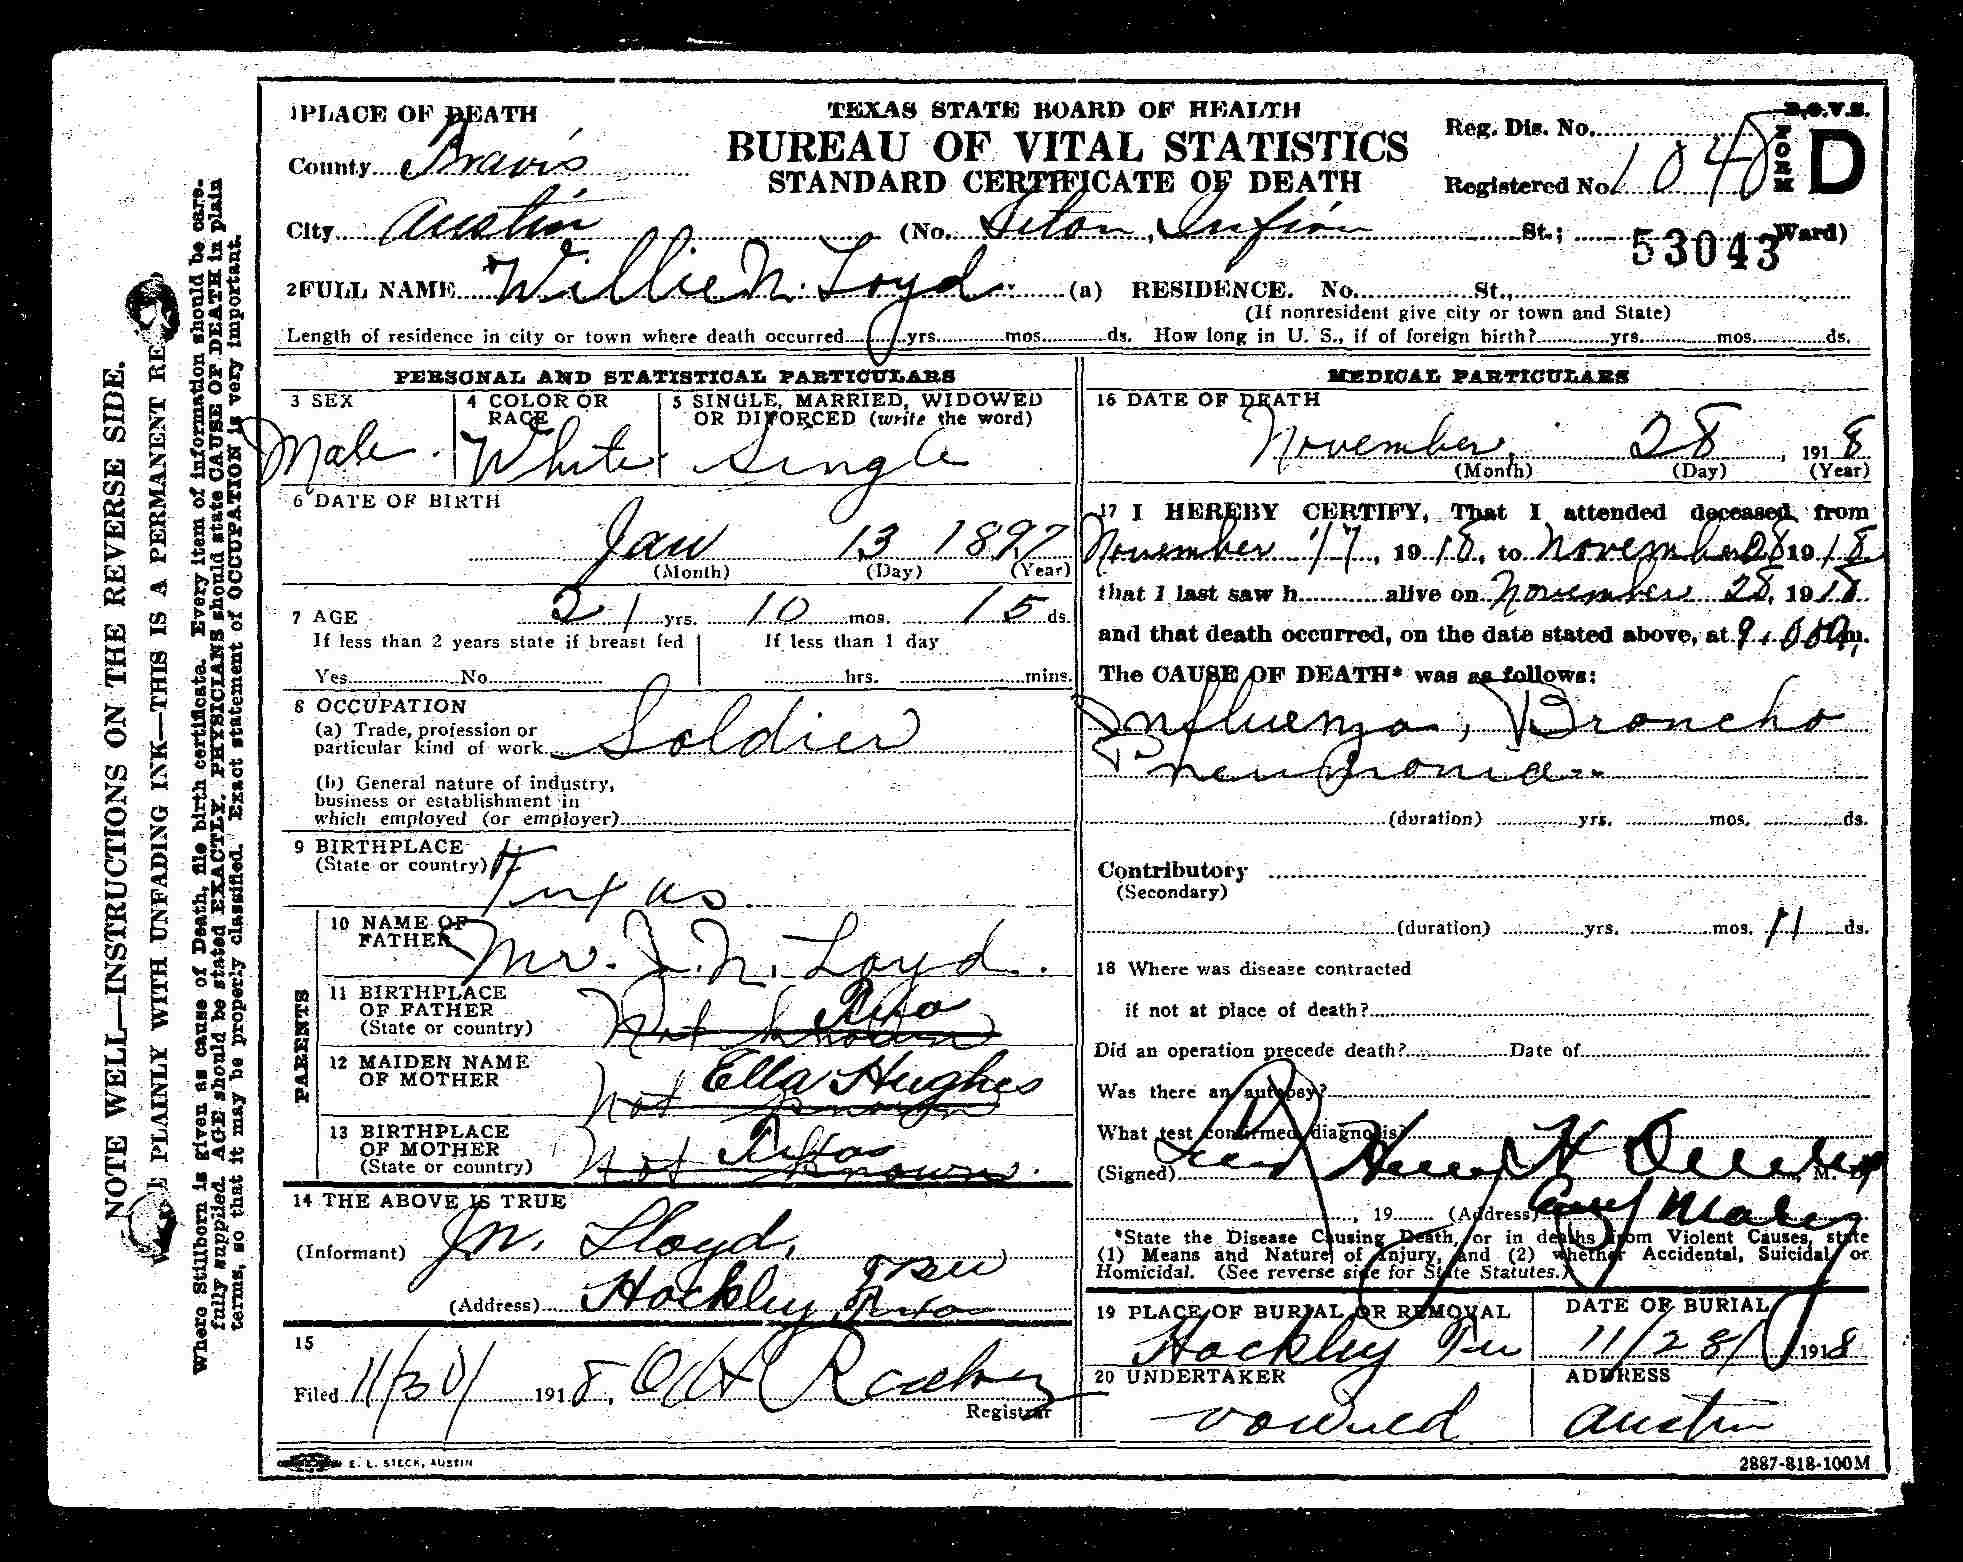 NOTE WELL—INSTRUCTIONS ON THE REVERSE SIDE.
PLAINLY WITH UNFADING INK—THIS IS A PERMANENT RE
Where Stillborn is given as cause of Death, file birth certificate. Every item of information should be care-
fully supplied. AGE should be stated EXACTLY. PHYSICIANS should state CAUSE OF DEATH in plain
terms, so that it may be properly classified. Exact statement of OCCUPATION is very important.
TEXAS STATE BOARD OF HEALTH
BUREAU OF VITAL STATISTICS
STANDARD CERTIFICATE OF DEATH
B.O.V.S.
FORM D
Reg. Dis. No.
Registered No. 1040
1 PLACE OF DEATH
County Travis
City Austin (No. Seton Infirm St.; Ward)
53043
2 FULL NAME Willie N. Loyd (a) RESIDENCE. No. St.,
(If nonresident give city or town and State)
Length of residence in city or town where death occurred yrs. mos. ds. How long in U. S., if of foreign birth? yrs. mos. ds.
PERSONAL AND STATISTICAL PARTICULARS
3 SEX
Male
4 COLOR OR RACE
White
5 SINGLE, MARRIED, WIDOWED OR DIVORCED (write the word)
Single
6 DATE OF BIRTH
Jan 13 1897
(Month) (Day) (Year)
7 AGE 21 yrs. 10 mos. 15 ds.
If less than 2 years state if breast fed If less than 1 day
Yes No hrs. mins.
8 OCCUPATION
(a) Trade, profession or
particular kind of work Soldier
(b) General nature of industry,
business or establishment in
which employed (or employer)
9 BIRTHPLACE
(State or country)
Texas
PARENTS
10 NAME OF FATHER Mr. J. N. Loyd.
11 BIRTHPLACE OF FATHER (State or country) Not known
12 MAIDEN NAME OF MOTHER Not known Ella Hughes
13 BIRTHPLACE OF MOTHER (State or country) Not known. Texas
14 THE ABOVE IS TRUE
(Informant) Jn. Lloyd,
(Address) Hockley, Texas
15
Filed 11/30/ 1918,
Registrar
E. L. STECK, AUSTIN
MEDICAL PARTICULARS
16 DATE OF DEATH
November, 28, 1918
(Month) (Day) (Year)
17 I HEREBY CERTIFY, That I attended deceased from
November 17, 1918, to November 28 1918
that I last saw h alive on November 28, 1918
and that death occurred, on the date stated above, at 9.00 a.m.
The CAUSE OF DEATH* was as follows:
Influenza, Broncho
Pneumonia
(duration) yrs. mos. ds.
Contributory
(Secondary)
(duration) yrs. mos. 11 ds.
18 Where was disease contracted
if not at place of death?
Did an operation precede death? Date of
Was there an autopsy?
What test confirmed diagnosis?
(Signed) M. D.
, 19 (Address)
*State the Disease Causing Death, or in deaths from Violent Causes, state
(1) Means and Nature of Injury, and (2) whether Accidental, Suicidal or
Homicidal. (See reverse side for State Statutes.)
19 PLACE OF BURIAL OR REMOVAL DATE OF BURIAL
Hockley Tex 11/28/ 1918
20 UNDERTAKER ADDRESS
Austin
2887-818-100M